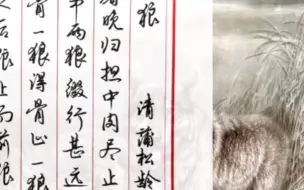 狼
清 蒲松龄
晚归担中肉尽止
两狼缀行甚远
骨一狼得骨止一狼
后狼止而前狼